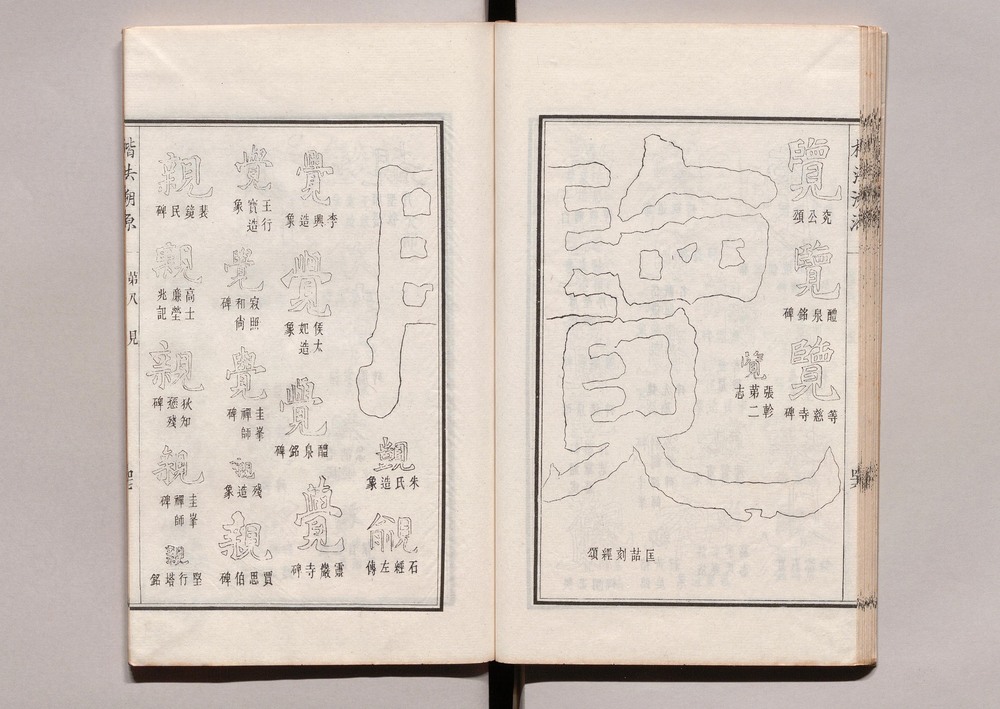 覽
兗公頌
覽
醴泉銘碑
覽
等慈寺碑
覽
張軫第二志
覽
匡喆刻經頌
朱氏造象
覦
石經左傳
覺
李興造象
覺
侯太妃造象
覺
醴泉銘碑
覺
靈巖寺碑
覺
王行寶造象
覺
寂照和尙碑
覺
圭峯禪師碑
親
殘造象
親
賈思伯碑
親
裴鏡民碑
親
高士廉塋兆記
親
狄知愻殘碑
親
圭峯禪師碑
親
堅行塔銘
楷法溯原
第八 見